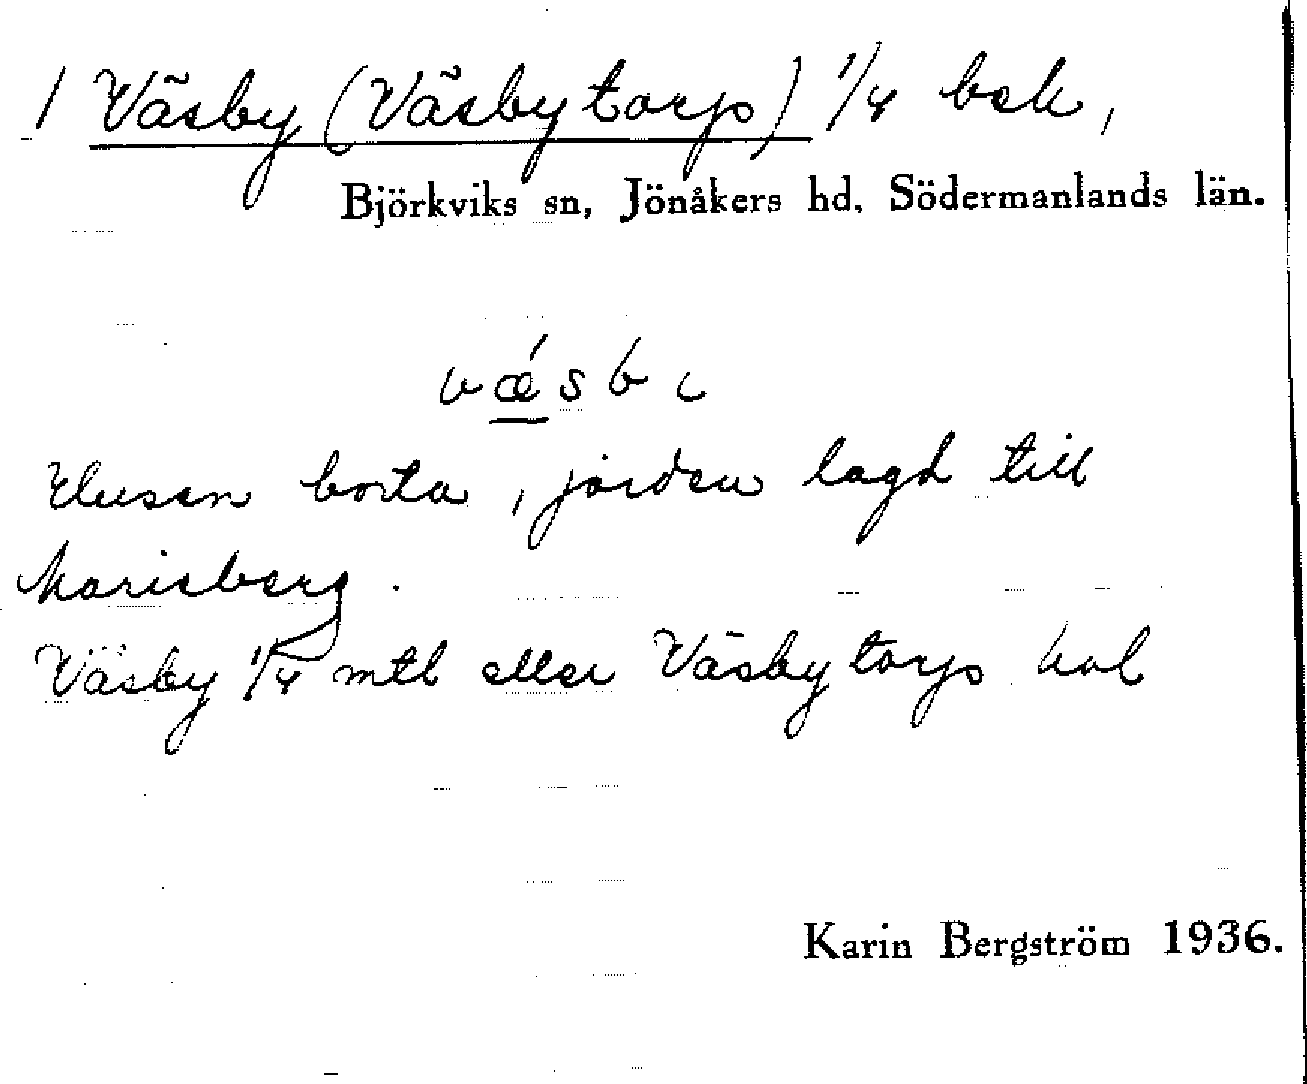 1 Väsby (Väsbytorp) 1/4 bsk,
Björkviks sn, Jönåkers hd, Södermanlands län.
vǽsbi
Husen borta, jorden lagd till
Marieberg.
Väsby 1/4 mtl eller Väsbytorp kal
Karin Bergström 1936.